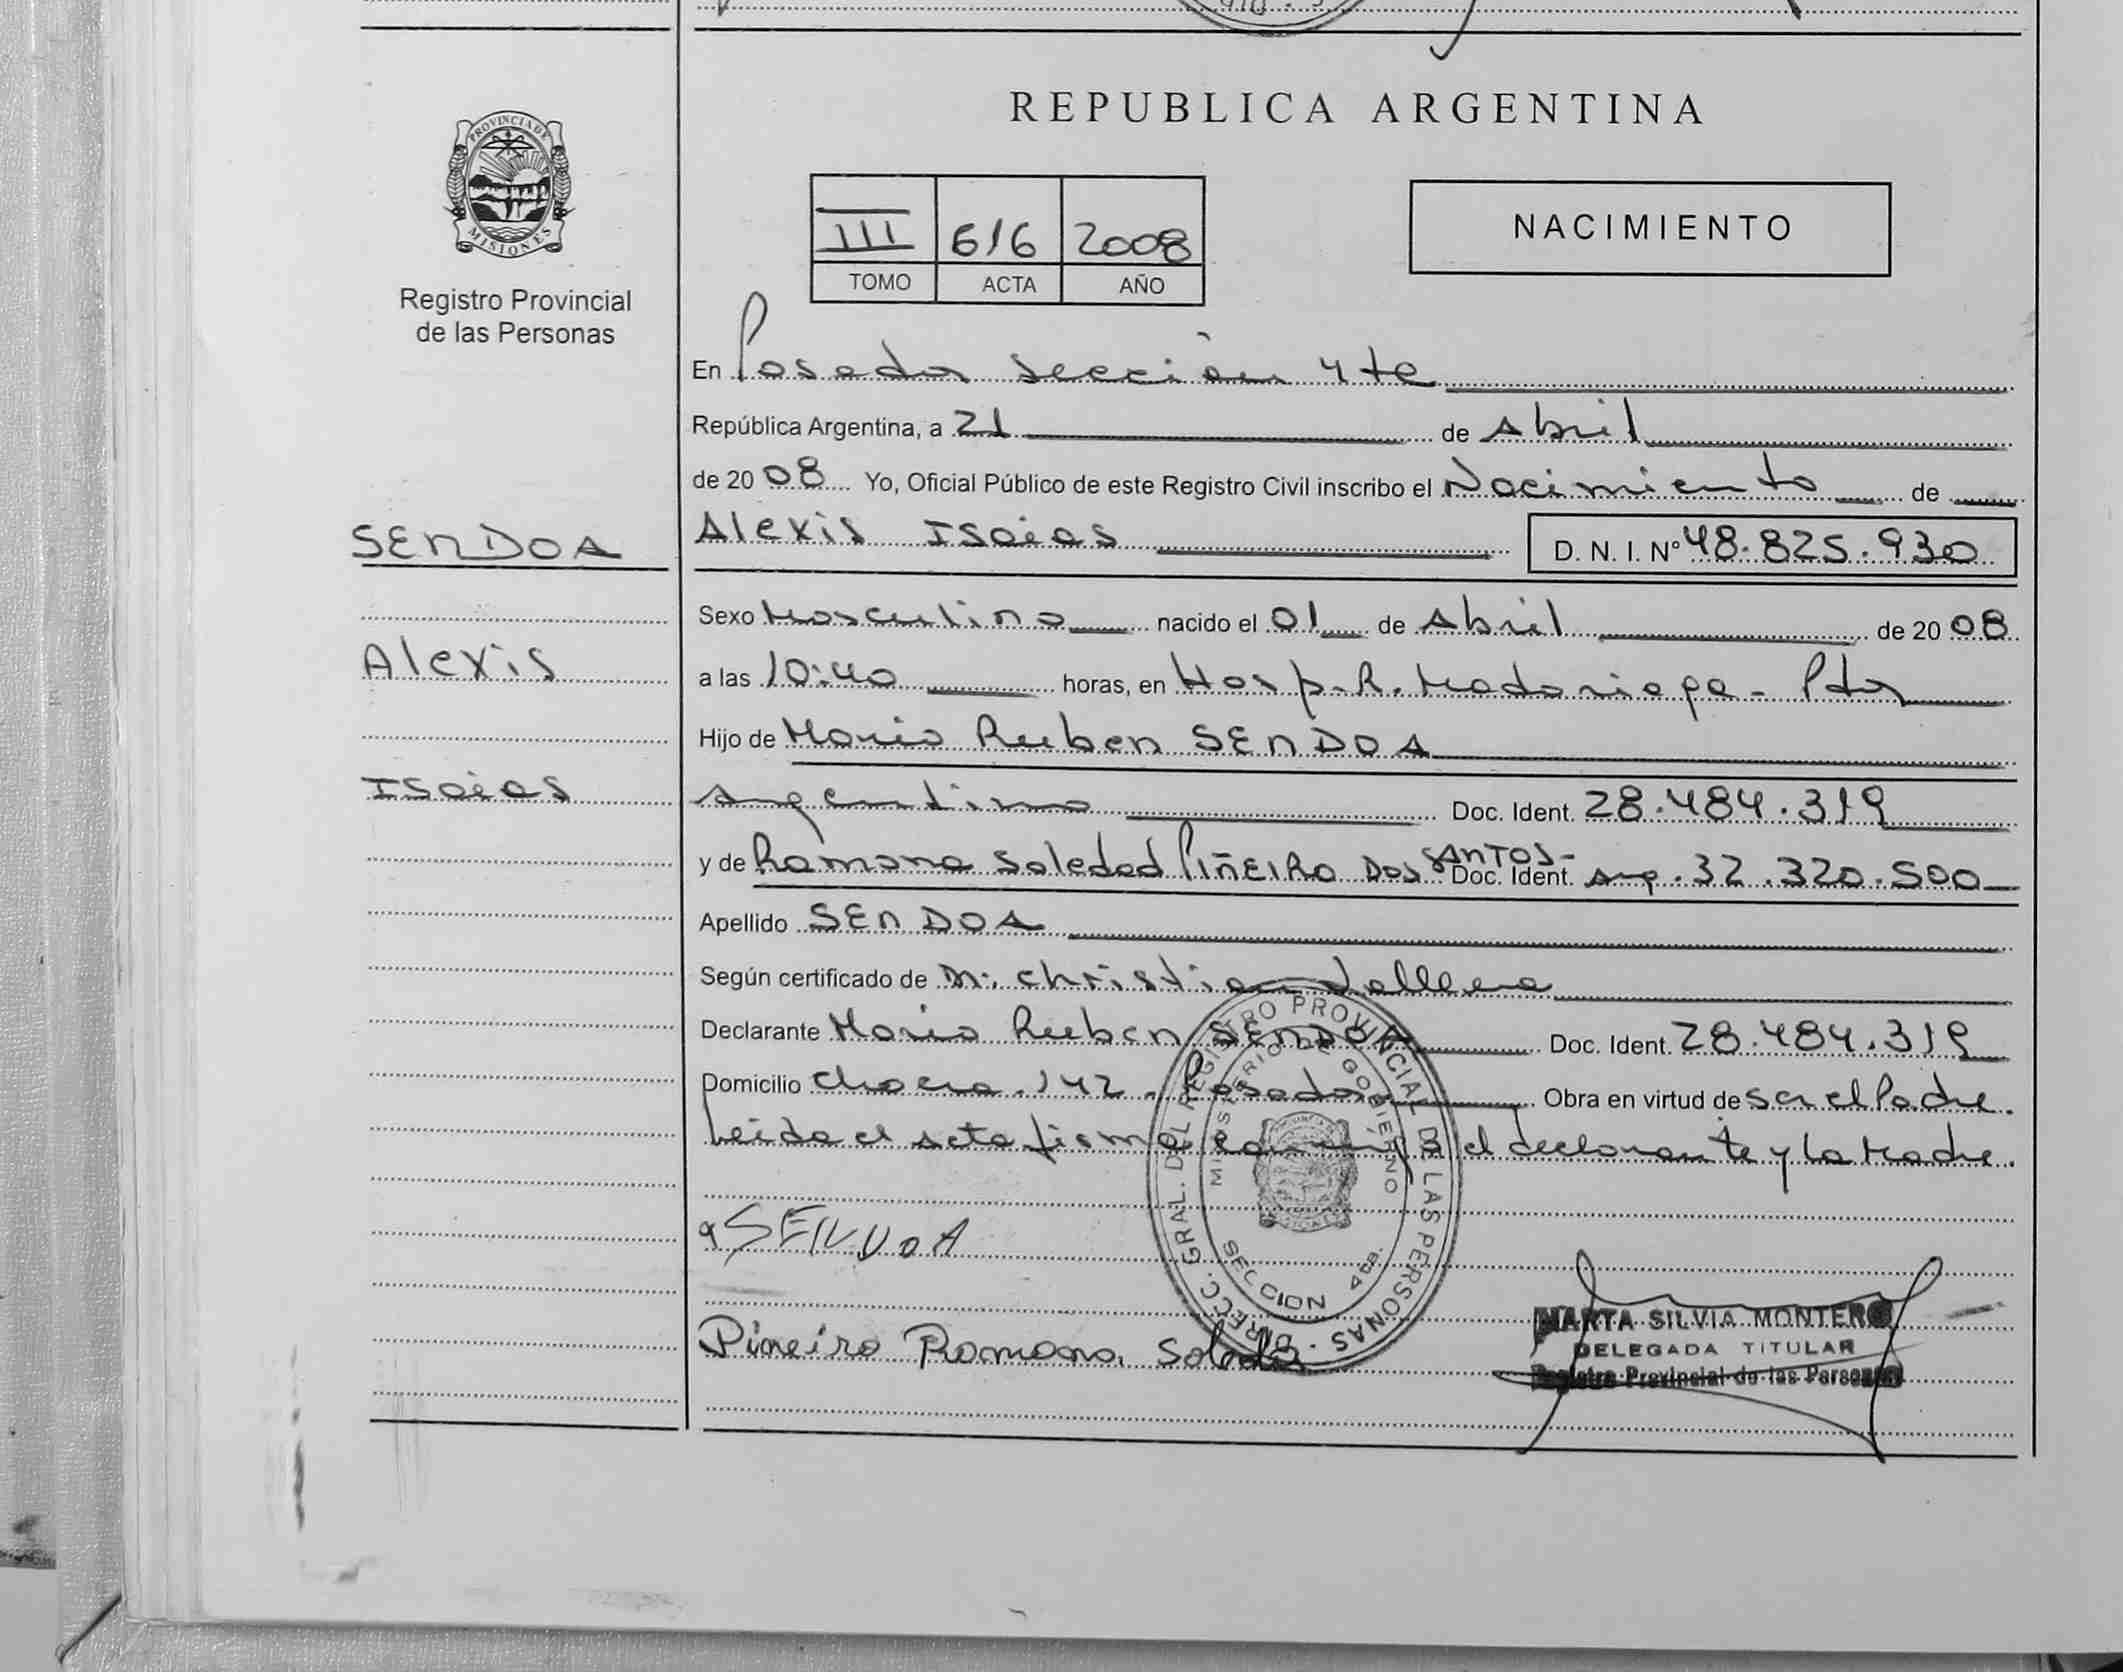 REPUBLICA ARGENTINA
PROVINCIA DE
MISIONES
Registro Provincial
de las Personas
III 616 2008
TOMO ACTA AÑO
NACIMIENTO
En Posadas sección 4ta
República Argentina, a 21 de Abril
de 2008 Yo, Oficial Público de este Registro Civil inscribo el Nacimiento de
SENDOA
Alexis Isaias D. N. I. Nº 48.825.930
Sexo Masculino nacido el 01 de Abril de 2008
Alexis
a las 10:40 horas, en Hosp. R. Madariaga - Pdas
Hijo de Mario Ruben SENDOA
Isaias
Argentino Doc. Ident. 28.484.319
y de Ramona Soledad PIÑEIRO DOS SANTOS- Doc. Ident. Arg. 32.320.500
Apellido SENDOA
Según certificado de Dr. Christian
Declarante Mario Ruben SENDOA Doc. Ident. 28.484.319
Domicilio Chacra 142 - Posadas Obra en virtud de Ser el Padre.
Leida el acta firma el declarante y la Madre.
DIRECC. GRAL. DEL REGISTRO PROVINCIAL DE LAS PERSONAS
MINISTERIO DE GOBIERNO
SECCION 4ta.
SENDOA
Pineiro Ramona Soledad
MARTA SILVIA MONTERO
DELEGADA TITULAR
Registro Provincial de las Personas